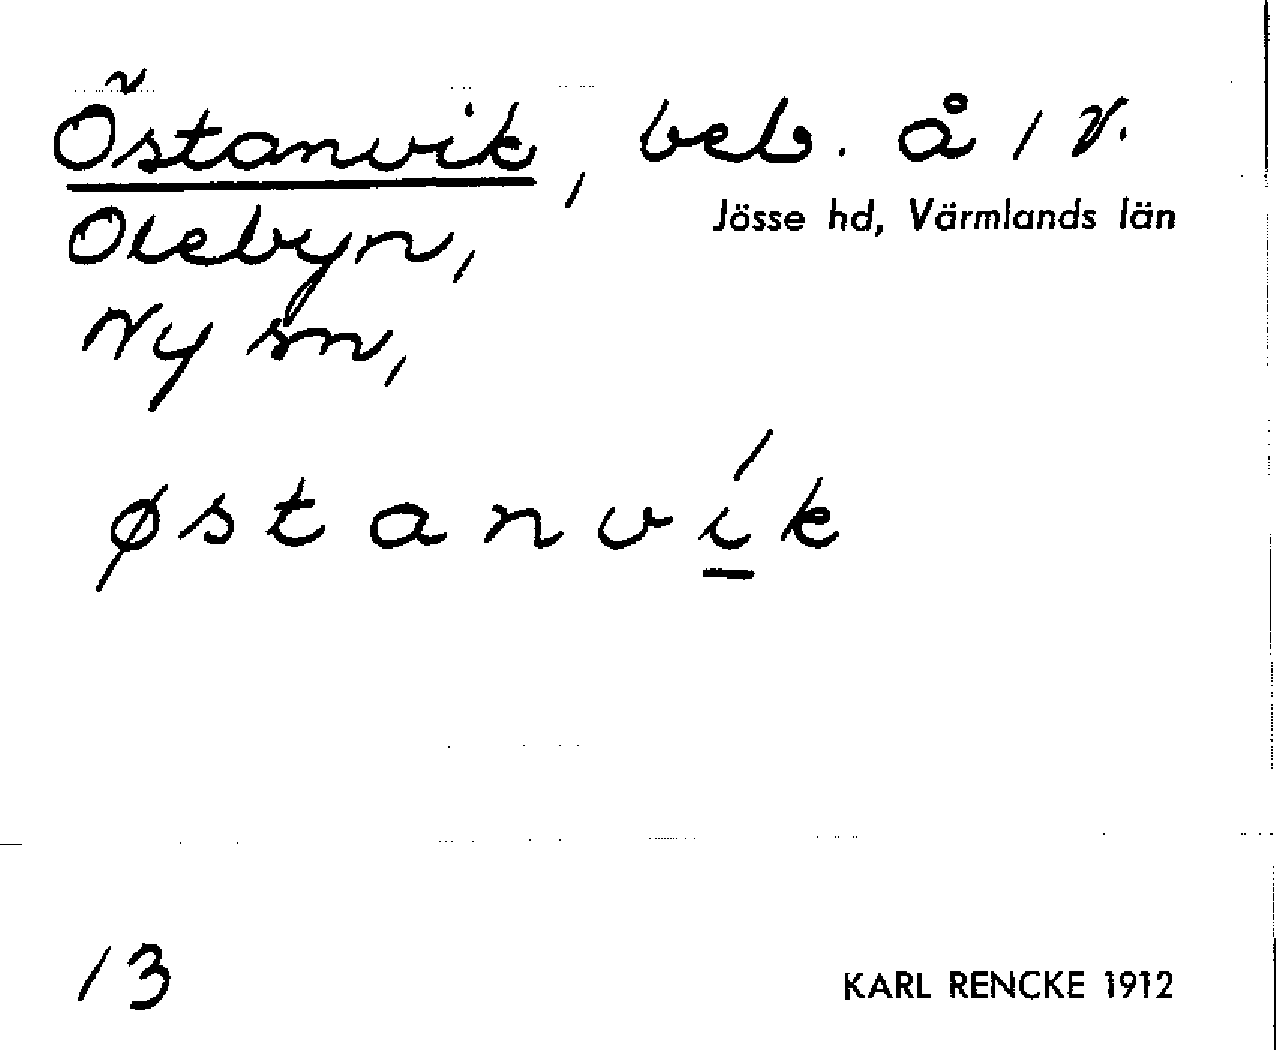 Östanvik, beb. å 1 V.
Jösse hd, Värmlands län
Olebyn,
Ny sn,
østanvík
13
KARL RENCKE 1912